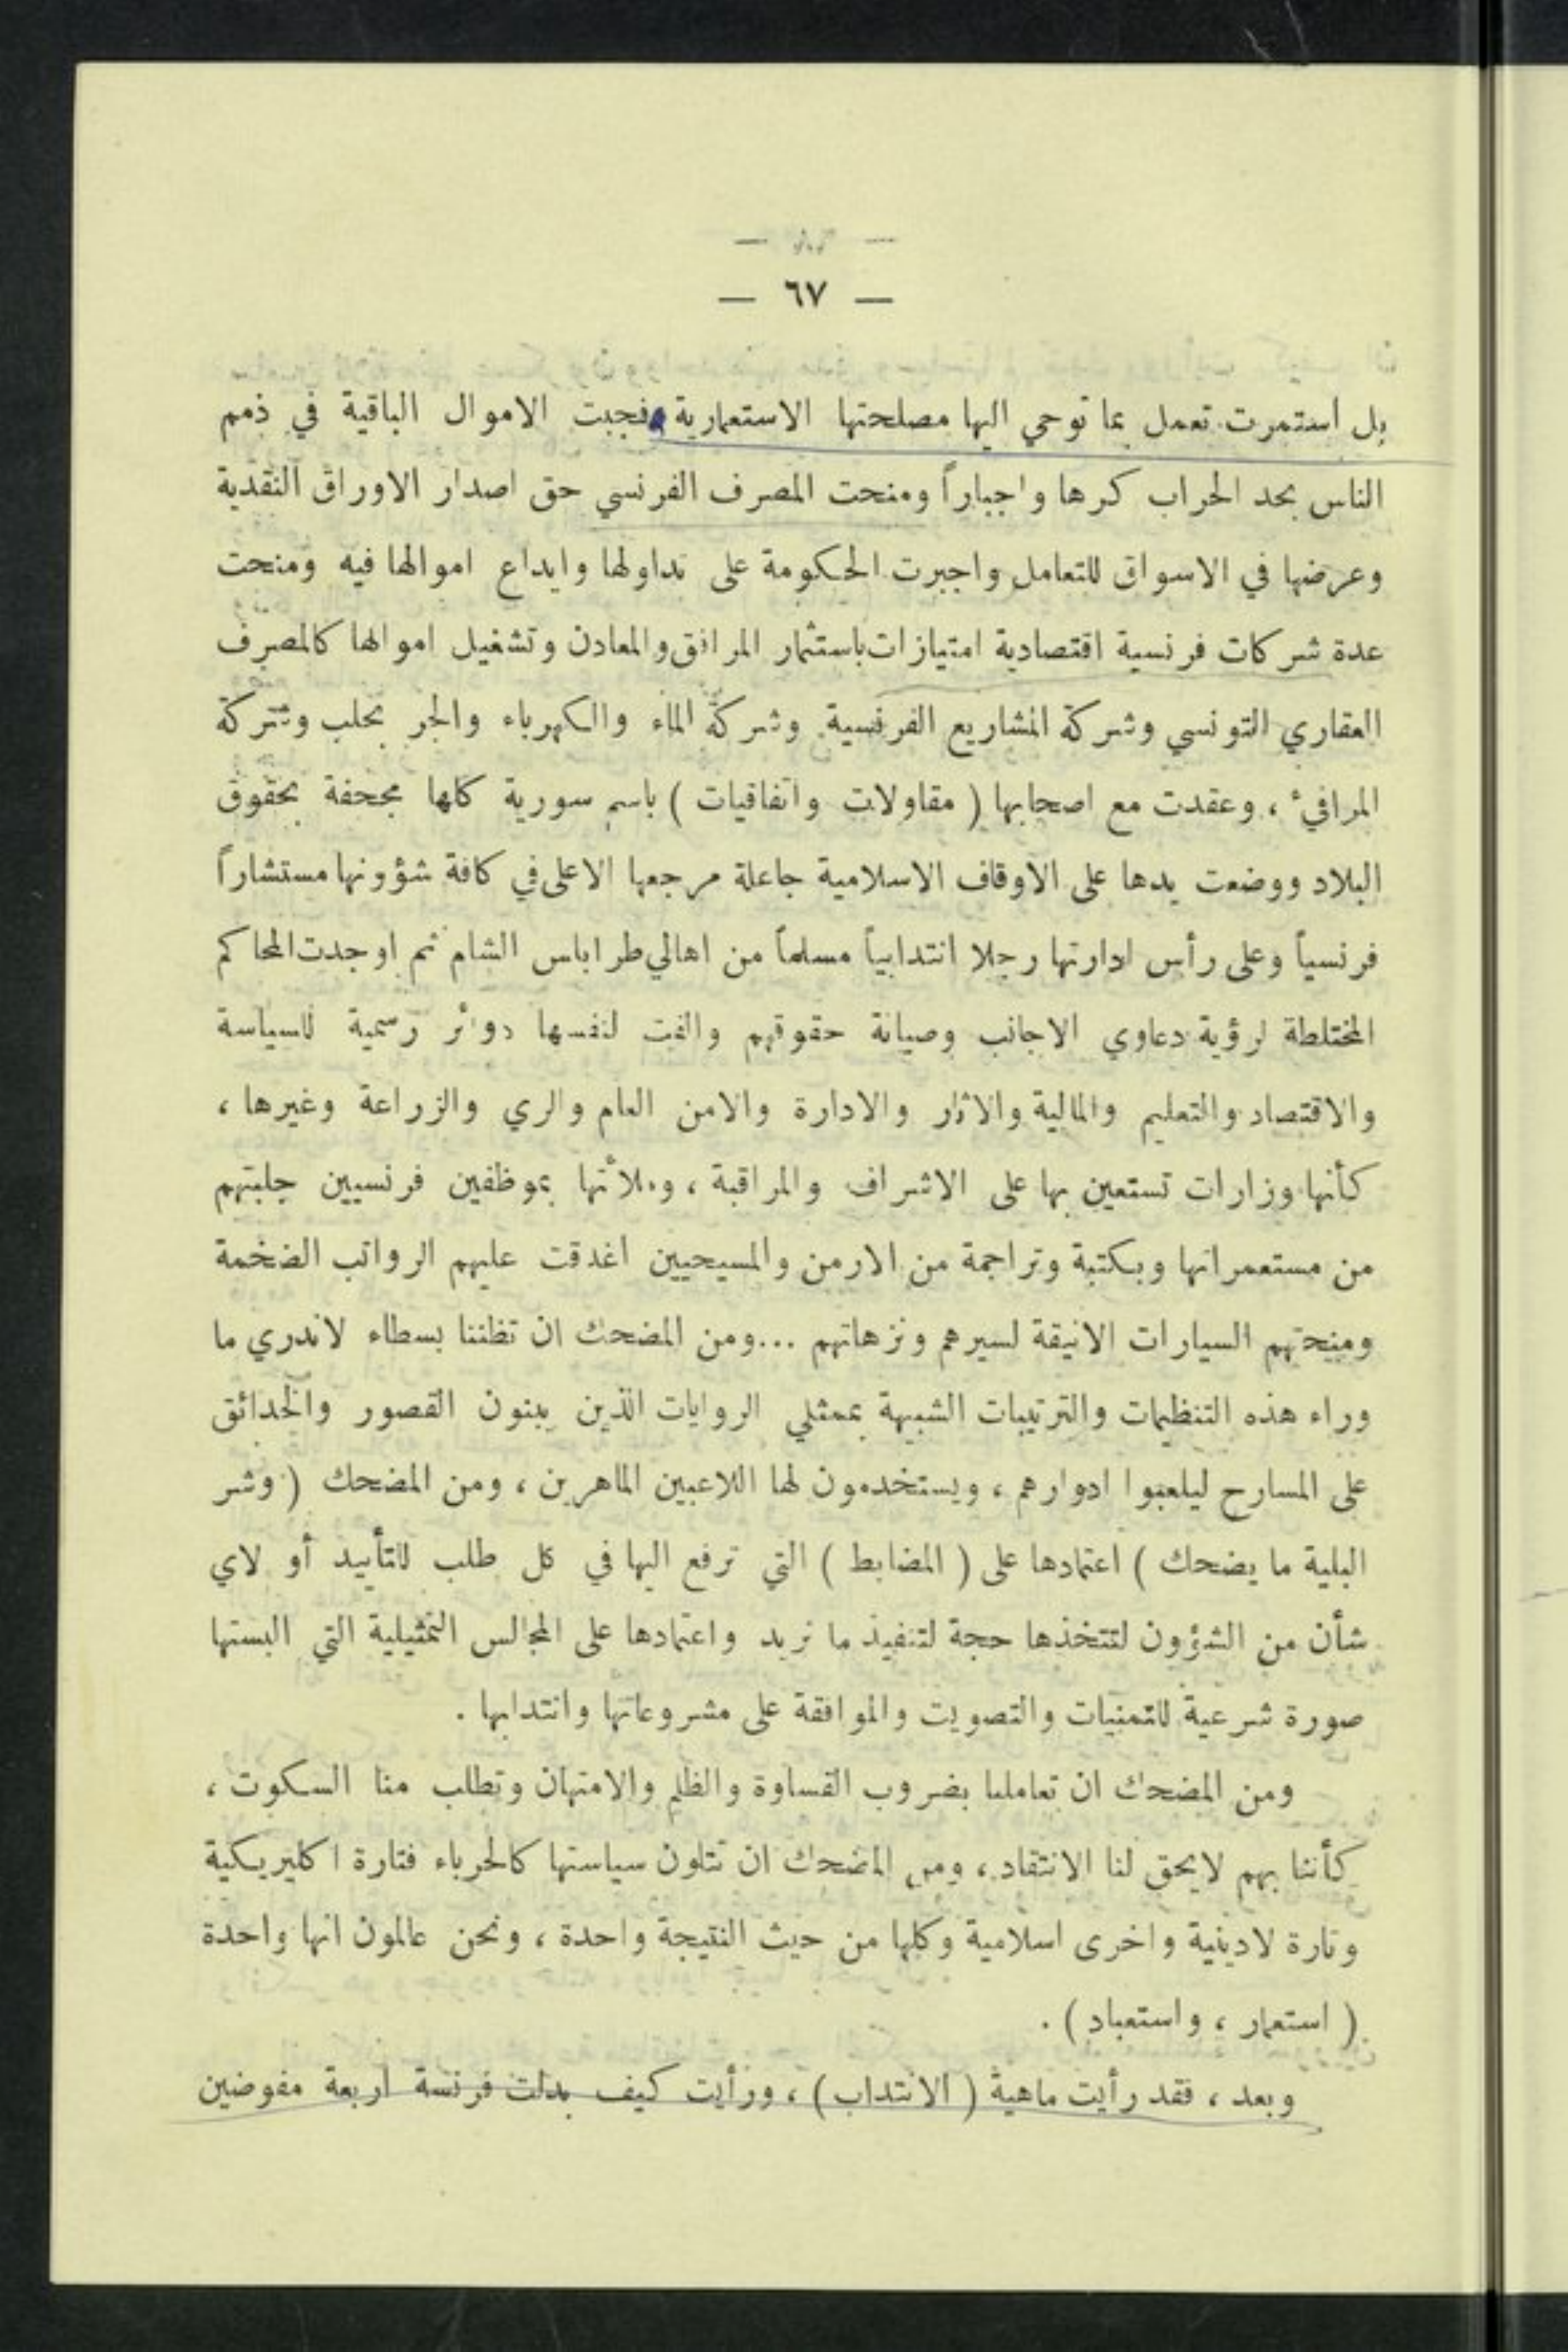 — ٦٧ —
بل استمرت تعمل بما توحي اليها مصلحتها الاستعمارية فجبت الاموال الباقية في ذمم
الناس بحد الحراب كرها واجباراً ومنحت المصرف الفرنسي حق اصدار الاوراق النقدية
وعرضها في الاسواق للتعامل واجبرت الحكومة على تداولها وايداع اموالها فيه ومنحت
عدة شركات فرنسية اقتصادية امتيازات باستثمار المرافق والمعادن وتشغيل اموالها كالمصرف
العقاري التونسي وشركة المشاريع الفرنسية وشركة الماء والكهرباء والجر بحلب وشركة
المرافيء ، وعقدت مع اصحابها ( مقاولات واتفاقيات ) باسم سورية كلها مجحفة بحقوق
البلاد ووضعت يدها على الاوقاف الاسلامية جاعلة مرجعها الاعلى في كافة شؤونها مستشاراً
فرنسياً وعلى رأس ادارتها رجلا انتدابياً مسلماً من اهالي طرابلس الشام ثم اوجدت المحاكم
المختلطة لرؤية دعاوي الاجانب وصيانة حقوقهم والفت لنفسها دوائر رسمية للسياسة
والاقتصاد والتعليم والمالية والآثار والادارة والامن العام والري والزراعة وغيرها ،
كأنها وزارات تستعين بها على الاشراف والمراقبة ، وملأتها بموظفين فرنسيين جلبتهم
من مستعمراتها وبكتبة وتراجمة من الارمن والمسيحيين اغدقت عليهم الرواتب الضخمة
ومنحتهم السيارات الانيقة لسيرهم ونزهاتهم ... ومن المضحك ان تظننا بسطاء لاندري ما
وراء هذه التنظيمات والترتيبات الشبيهة بممثلي الروايات الذين يبنون القصور والحدائق
على المسارح ليلعبوا ادوارهم ، ويستخدمون لها اللاعبين الماهرين ، ومن المضحك ( وشر
البلية ما يضحك ) اعتمادها على ( المضابط ) التي ترفع اليها في كل طلب للتأييد أو لاي
شأن من الشؤون لتتخذها حجة لتنفيذ ما تريد واعتمادها على المجالس التمثيلية التي البستها
صورة شرعية للتمنيات والتصويت والموافقة على مشروعاتها وانتدابها .
ومن المضحك ان تعاملنا بضروب القساوة والظلم والامتهان وتطلب منا السكوت ،
كأننا بهم لايحق لنا الانتقاد ، ومن المضحك ان تتلون سياستها كالحرباء فتارة اكليريكية
وتارة لادينية واخرى اسلامية وكلها من حيث النتيجة واحدة ، ونحن عالمون انها واحدة
( استعمار ، واستعباد ) .
وبعد ، فقد رأيت ماهية ( الانتداب ) ، ورأيت كيف بدلت فرنسة اربعة مفوضين